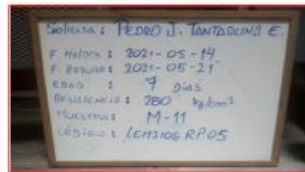 Solicita: PEDRO J. TANTALEAN E.
F. Moldeo: 2021-05-14
F. Rotura: 2021-05-21
EDAD: 7 días
RESISTENCIA: 280 kg/cm²
MUESTRA: M-11
CÓDIGO: LEM2106 RP.05